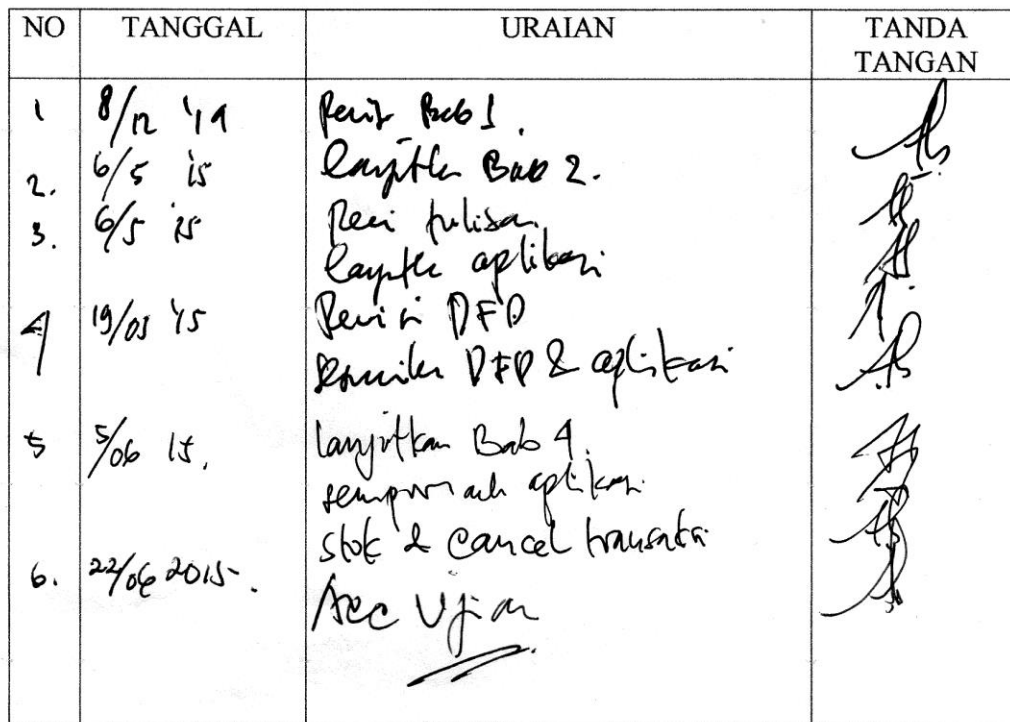 NO TANGGAL URAIAN TANDA TANGAN
1 8/12 '14 Revisi Bab 1.
2. 6/5 15 lanjutkan Bab 2.
3. 6/5 15 Revisi tulisan
lanjutkan aplikasi
4 19/05 '15 Revisi DFD
DFD & aplikasi
5 5/06 15. lanjutkan Bab 4.
sempurnakan aplikasi
stok & cancel transaksi
6. 22/06 2015.
Acc Ujian